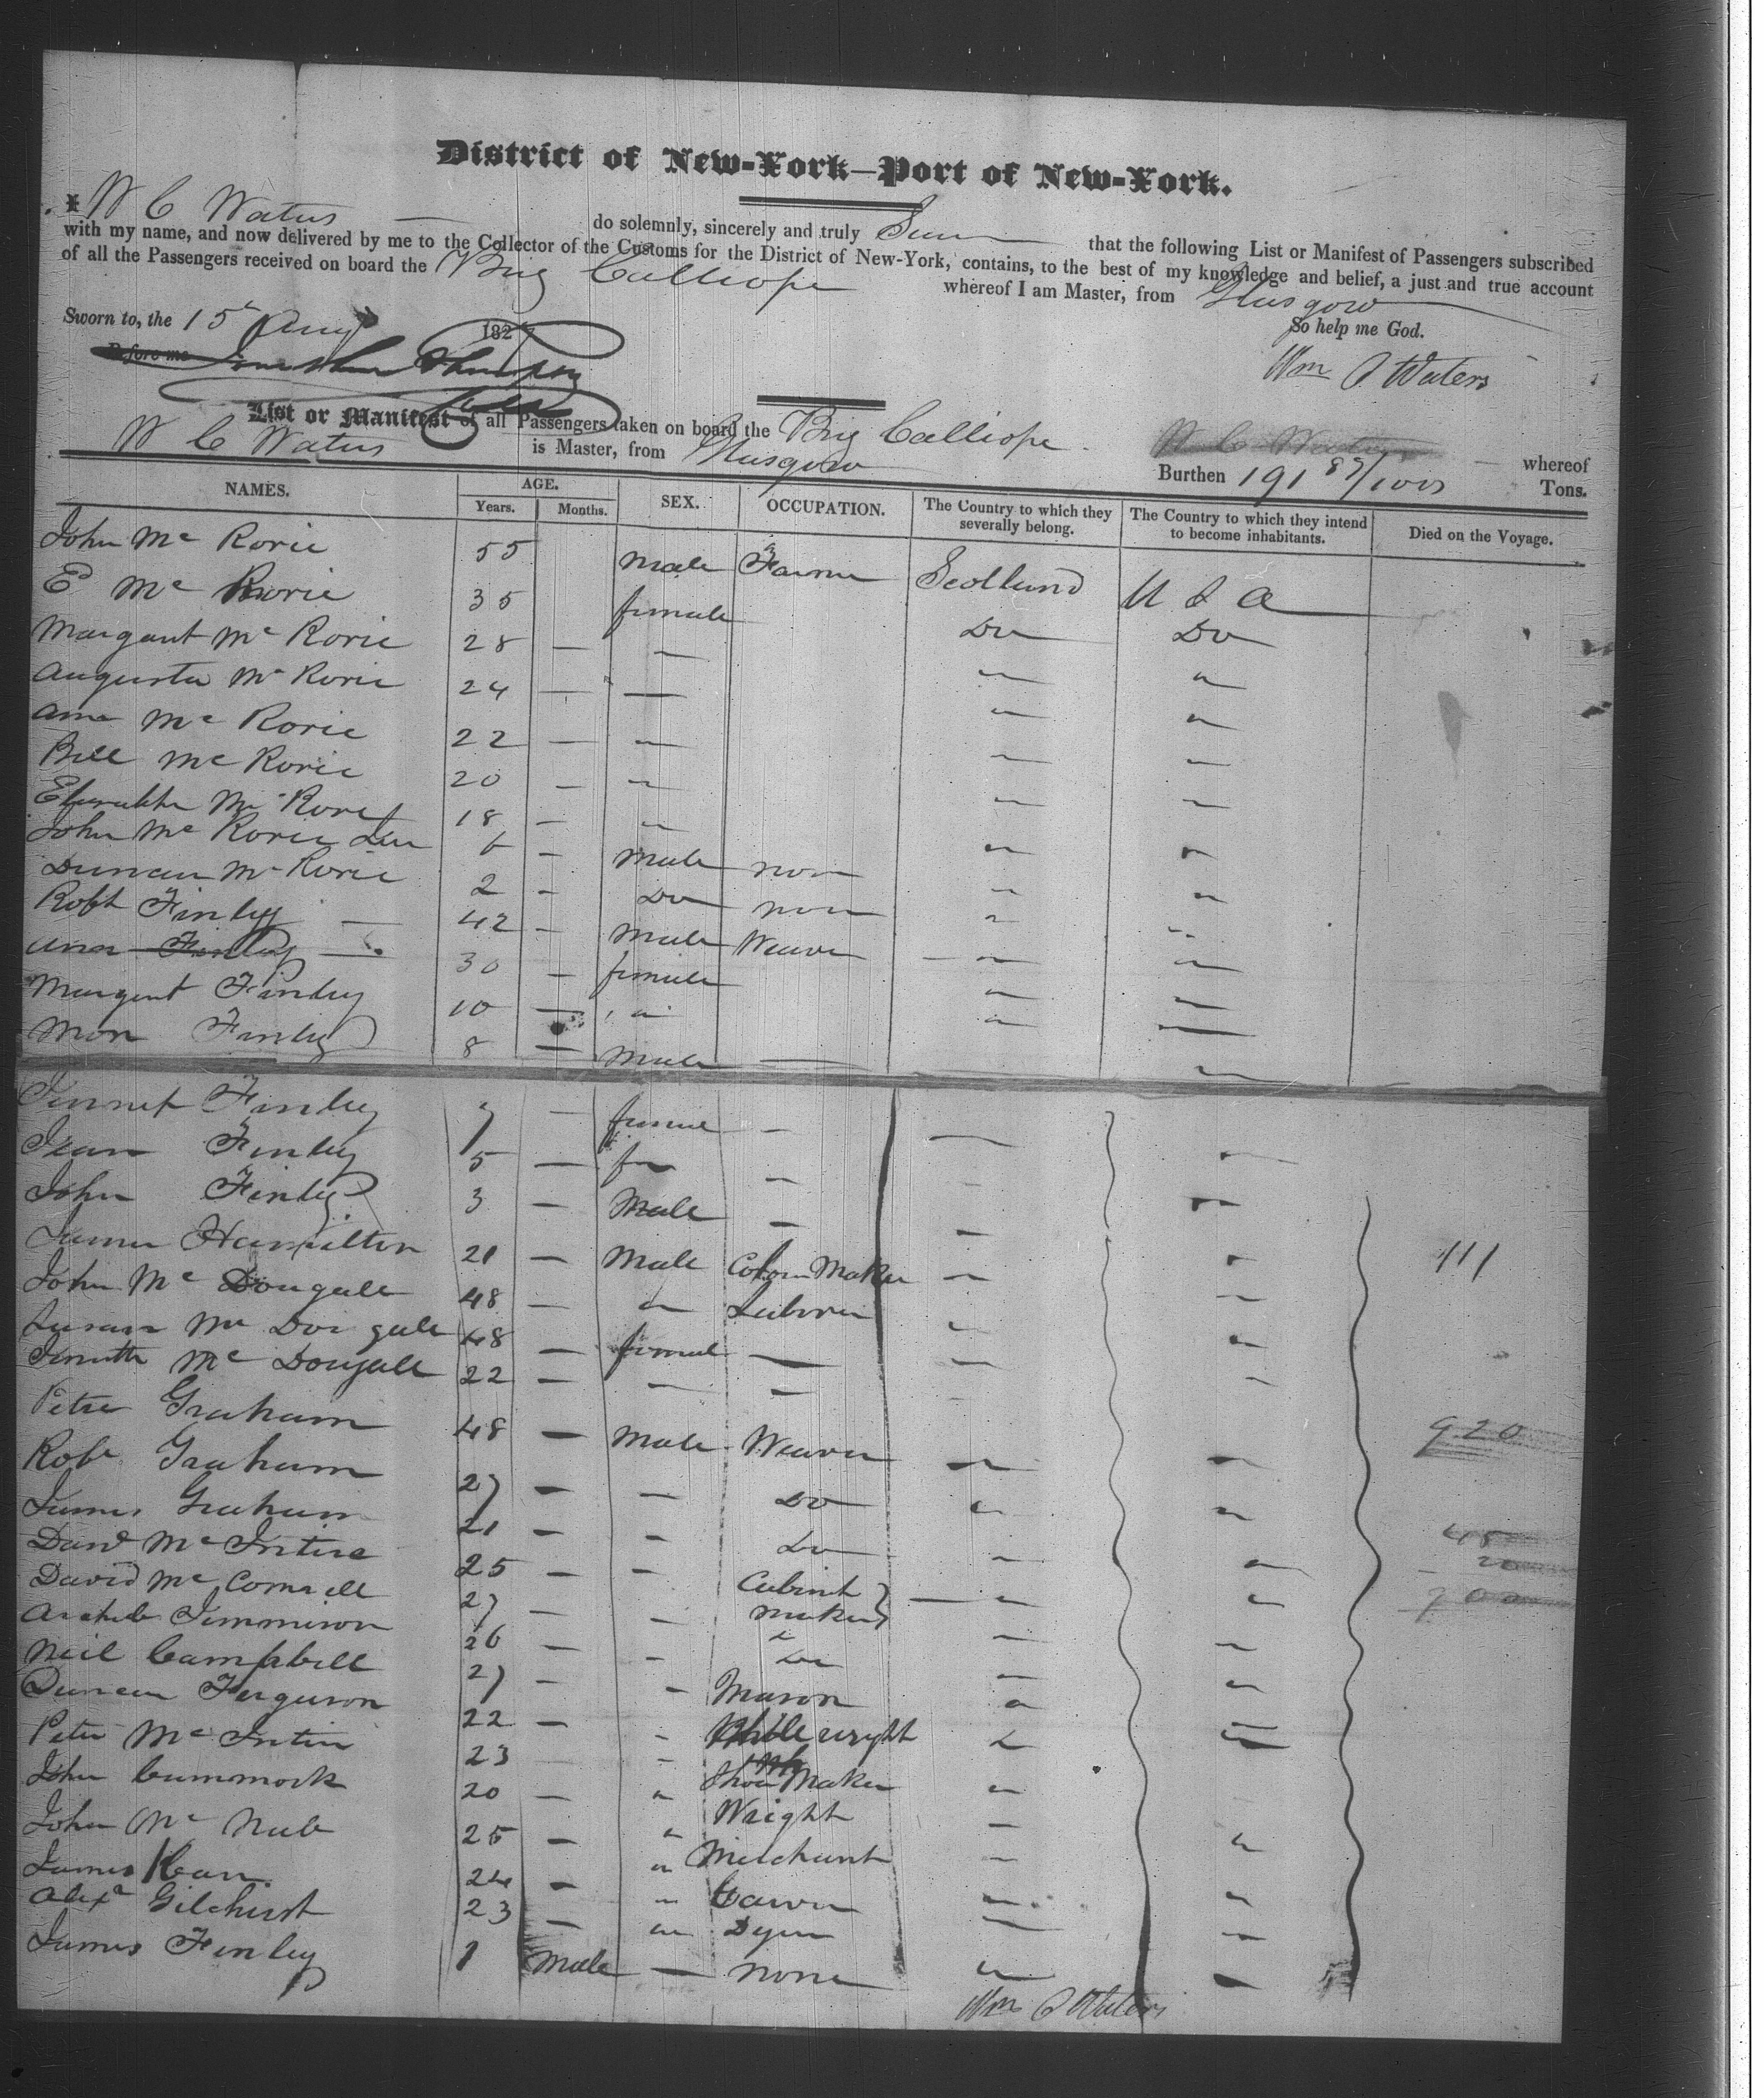 District of New-York—Port of New-York.
I W C Waters do solemnly, sincerely and truly that the following List or Manifest of Passengers subscribed
with my name, and now delivered by me to the Collector of the Customs for the District of New-York, contains, to the best of my knowledge and belief, a just and true account
of all the Passengers received on board the Brig Calliope whereof I am Master, from Glasgow
Sworn to, the 15th Aug 1827 So help me God.
Before me Jonathan Thompson Wm C Waters
List or Manifest of all Passengers taken on board the Brig Calliope W C Waters whereof
W C Waters is Master, from Glasgow Burthen 191 89/100 Tons.
NAMES. AGE. SEX. OCCUPATION. The Country to which they severally belong. The Country to which they intend to become inhabitants. Died on the Voyage.
Years. Months.
John Mc Rorie 55 male Farmer Scotland U S A
E Mc Rorie 35 female Do Do
Margaret Mc Rorie 28 — —
Augusta Mc Rorie 24 — —
Ann Mc Rorie 22 — "
Bell Mc Rorie 20 — "
Mc Rorie 18 — "
John Mc Rorie 6 — Male non
Duncan Mc Rorie 2 — Do non
Robt Finley — 42 — Male Weaver
Ann Finley — 30 — female
Margaret Finley 10 — "
Finley 8 — Male —
Jennet Finley 7 — —
Jean Finley 5 — fe —
John Finley 3 — Male —
James Hamilton 21 — Male Maker 111
John Mc Dougall 48 — " Laborer
Susan Mc Dougall 48 — female —
Mc Dougall 22 — — —
Peter Graham 48 — Male Weaver 920
Robt Graham 27 — — Do
James Graham 21 — — Do
Mc Intire 25 — — Cabint
David Mc 27 — — maker
Jemmison 26 — — Do
Neil Campbell 27 — — Mason
Duncan Ferguson 22 — " wright
Peter Mc Intire 23 — " Shoe Maker
John Cummock 20 — " Wright
John Mc Nab 25 — " Merchant
James 24 — " Carver
Alexr Gilchrist 23 — " Dyer
James Finley 1 Male — none
Wm C Waters